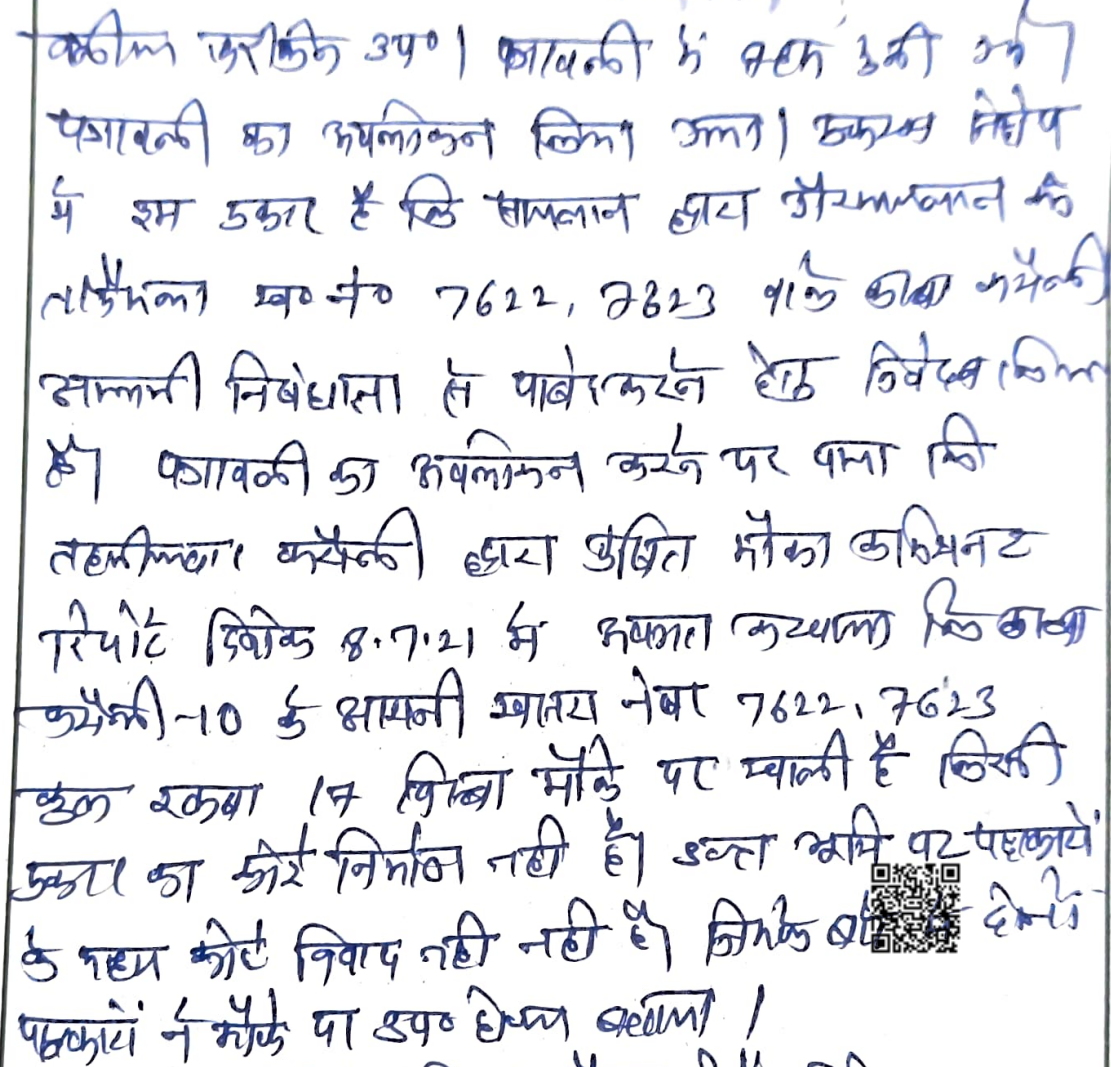 वकील फरीकैन उप०। पत्रावली में बहस सुनी गई।
पत्रावली का अवलोकन किया गया। प्रकरण संक्षेप
में इस प्रकार है कि सायलान द्वारा गैरसायलान के
ता फैसला ख० नं० 7622, 7623 वाके कस्बा करौली
अस्थायी निषेधाज्ञा से पाबंद करने हेतु निवेदन किया
है। पत्रावली का अवलोकन करने पर पाया कि
तहसीलदार करौली द्वारा प्रेषित मौका कमिश्नर
रिपोर्ट दिनांक 8.7.21 में अवगत करवाया कि कस्बा
करौली-10 के आराजी खसरा नंबर 7622, 7623
कुल रकबा 17 बिस्वा मौके पर खाली है किसी
प्रकार का कोई निर्माण नहीं है। उक्त भूमि पर पक्षकारों
के मध्य कोई विवाद नहीं नहीं है। जिसके दोनों
पक्षकारों ने मौके पर उप० होकर बताया।